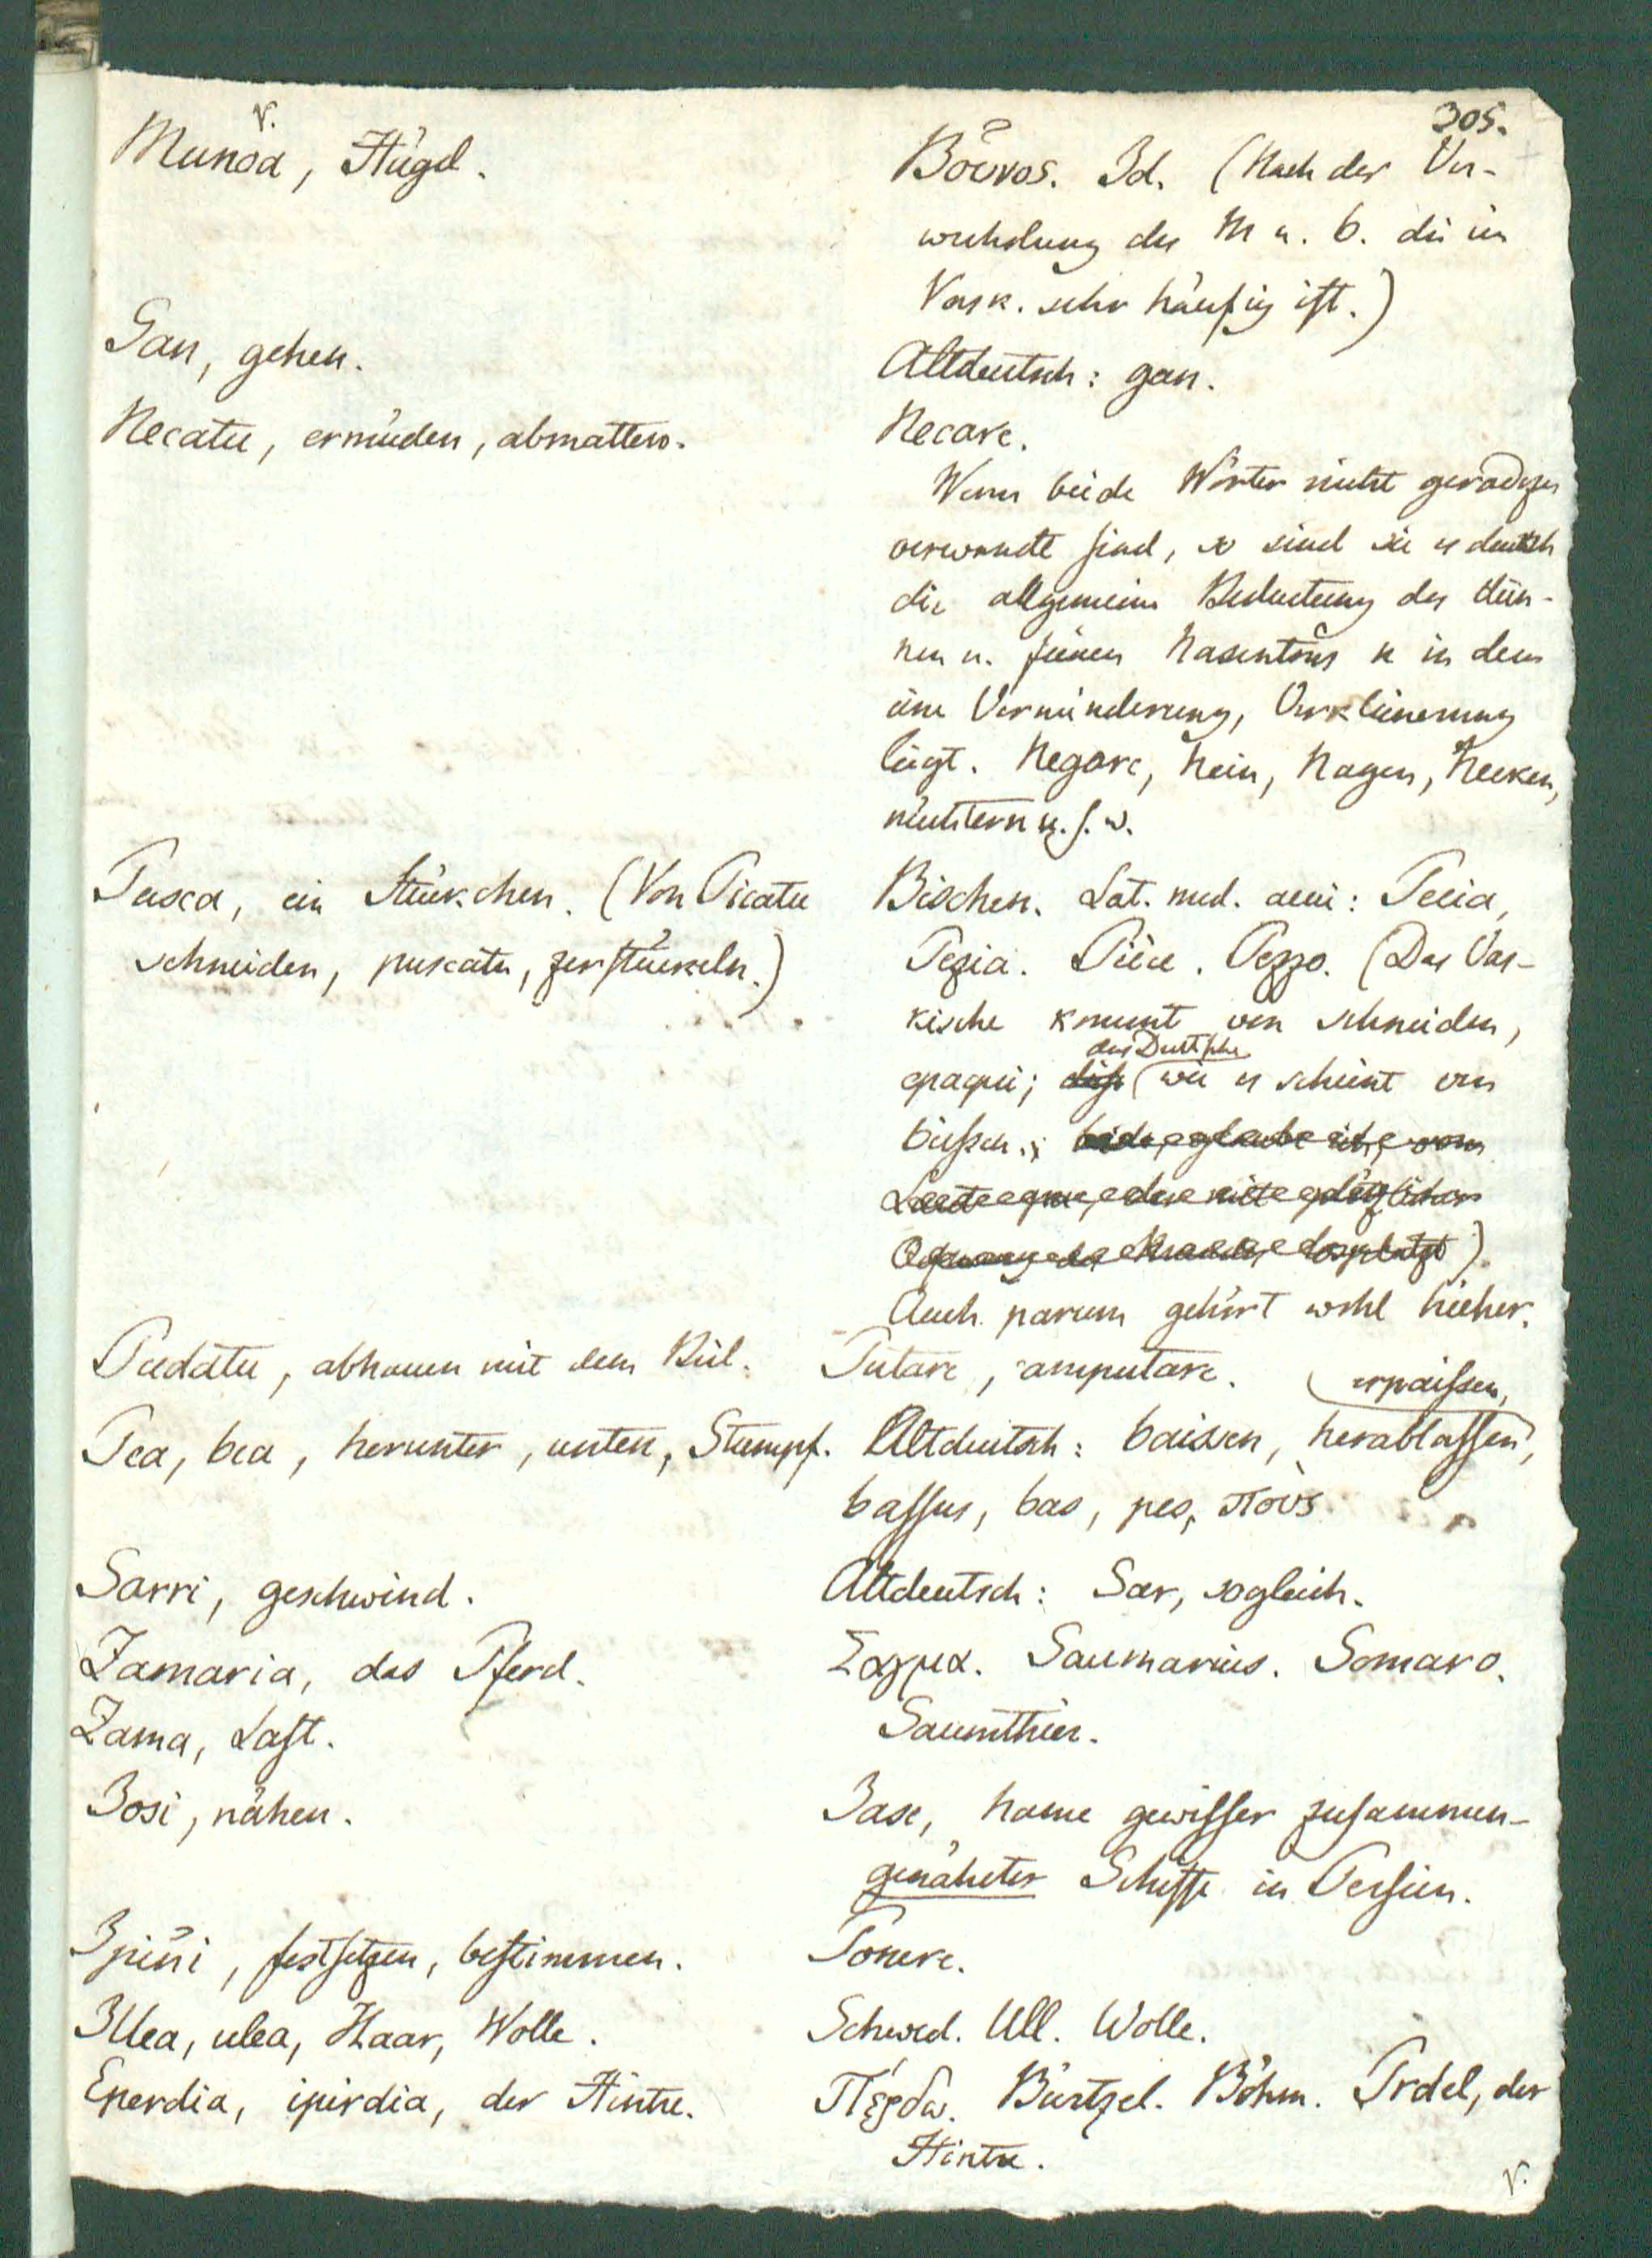 305.
v.
Munoa, Hügel.
Βουνος. Id. (Nach der Ver-
wechslung des M u. b. die im
Vask. sehr häufig ist.)
Gan, gehen.
Altdeutsch: gan.
Necatu, ermüden, abmatten.
Necare.
Wenn beide Wörter nicht geradezu
verwandt sind, so sind sie es durch
die allgemeine Bedeutung des dün-
nen u. feinen Nasentons n in dem
eine Verminderung, Verkleinerung
liegt. Negare, Nein, Nagen, Necken,
nüchtern u. s. w.
Pusca, ein Stückchen. (Von Picatu
schneiden, puscatu, zerstückeln.)
Bischen. Lat. med. aevi: Pecia,
Pezia. Pièce. Pezzo. (Das Vas-
kische kommt von schneiden,
das Deutsche
epaqui; dieß (wie es scheint von
beißen.; beide, glaube ich, vom
Laute
Auch parum gehört wohl hieher.
Pudatu, abhauen mit dem Beil.
Putare, amputare.
Pea, bea, herunter, unten, Stumpf.
erpaissen,
Altdeutsch: baissen, herablassen,
bassus, bas, pes, πους
Sarri, geschwind.
Altdeutsch: Sar, sogleich.
Zamaria, das Pferd.
Σαγμα. Saumarius. Somaro.
Zama, Last.
Saumthier.
Josi, nähen.
Jase, Name gewisser zusammen-
genäheter Schiffe in Persien.
Ipini, festsetzen, bestimmen.
Ponere.
Illea, ulea, Haar, Wolle.
Schwed. Ull. Wolle.
Eperdia, ipirdia, der Hintre.
Πέρδω. Bürtzel. Böhm. Prdel, der
Hintre.
v.